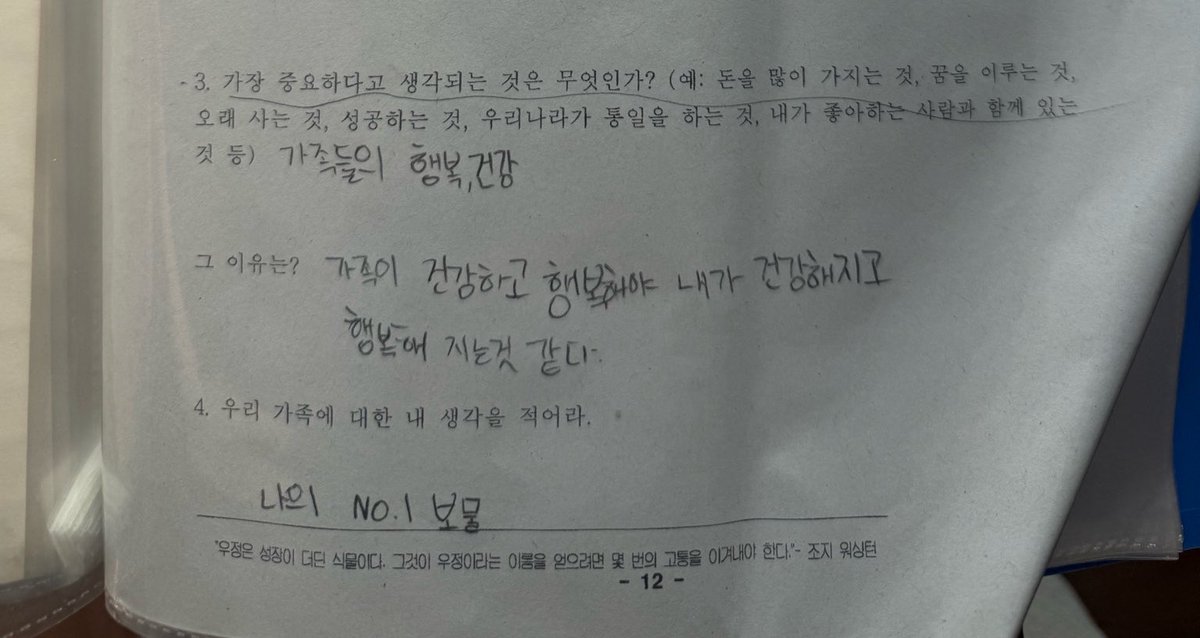 3. 가장 중요하다고 생각되는 것은 무엇인가? (예: 돈을 많이 가지는 것, 꿈을 이루는 것,
오래 사는 것, 성공하는 것, 우리나라가 통일을 하는 것, 내가 좋아하는 사람과 함께 있는
것 등) 가족들의 행복,건강
그 이유는? 가족이 건강하고 행복해야 내가 건강해지고
행복해 지는것 같다.
4. 우리 가족에 대한 내 생각을 적어라.
나의 NO.1 보물
"우정은 성장이 더딘 식물이다. 그것이 우정이라는 이름을 얻으려면 몇 번의 고통을 이겨내야 한다."- 조지 워싱턴
- 12 -